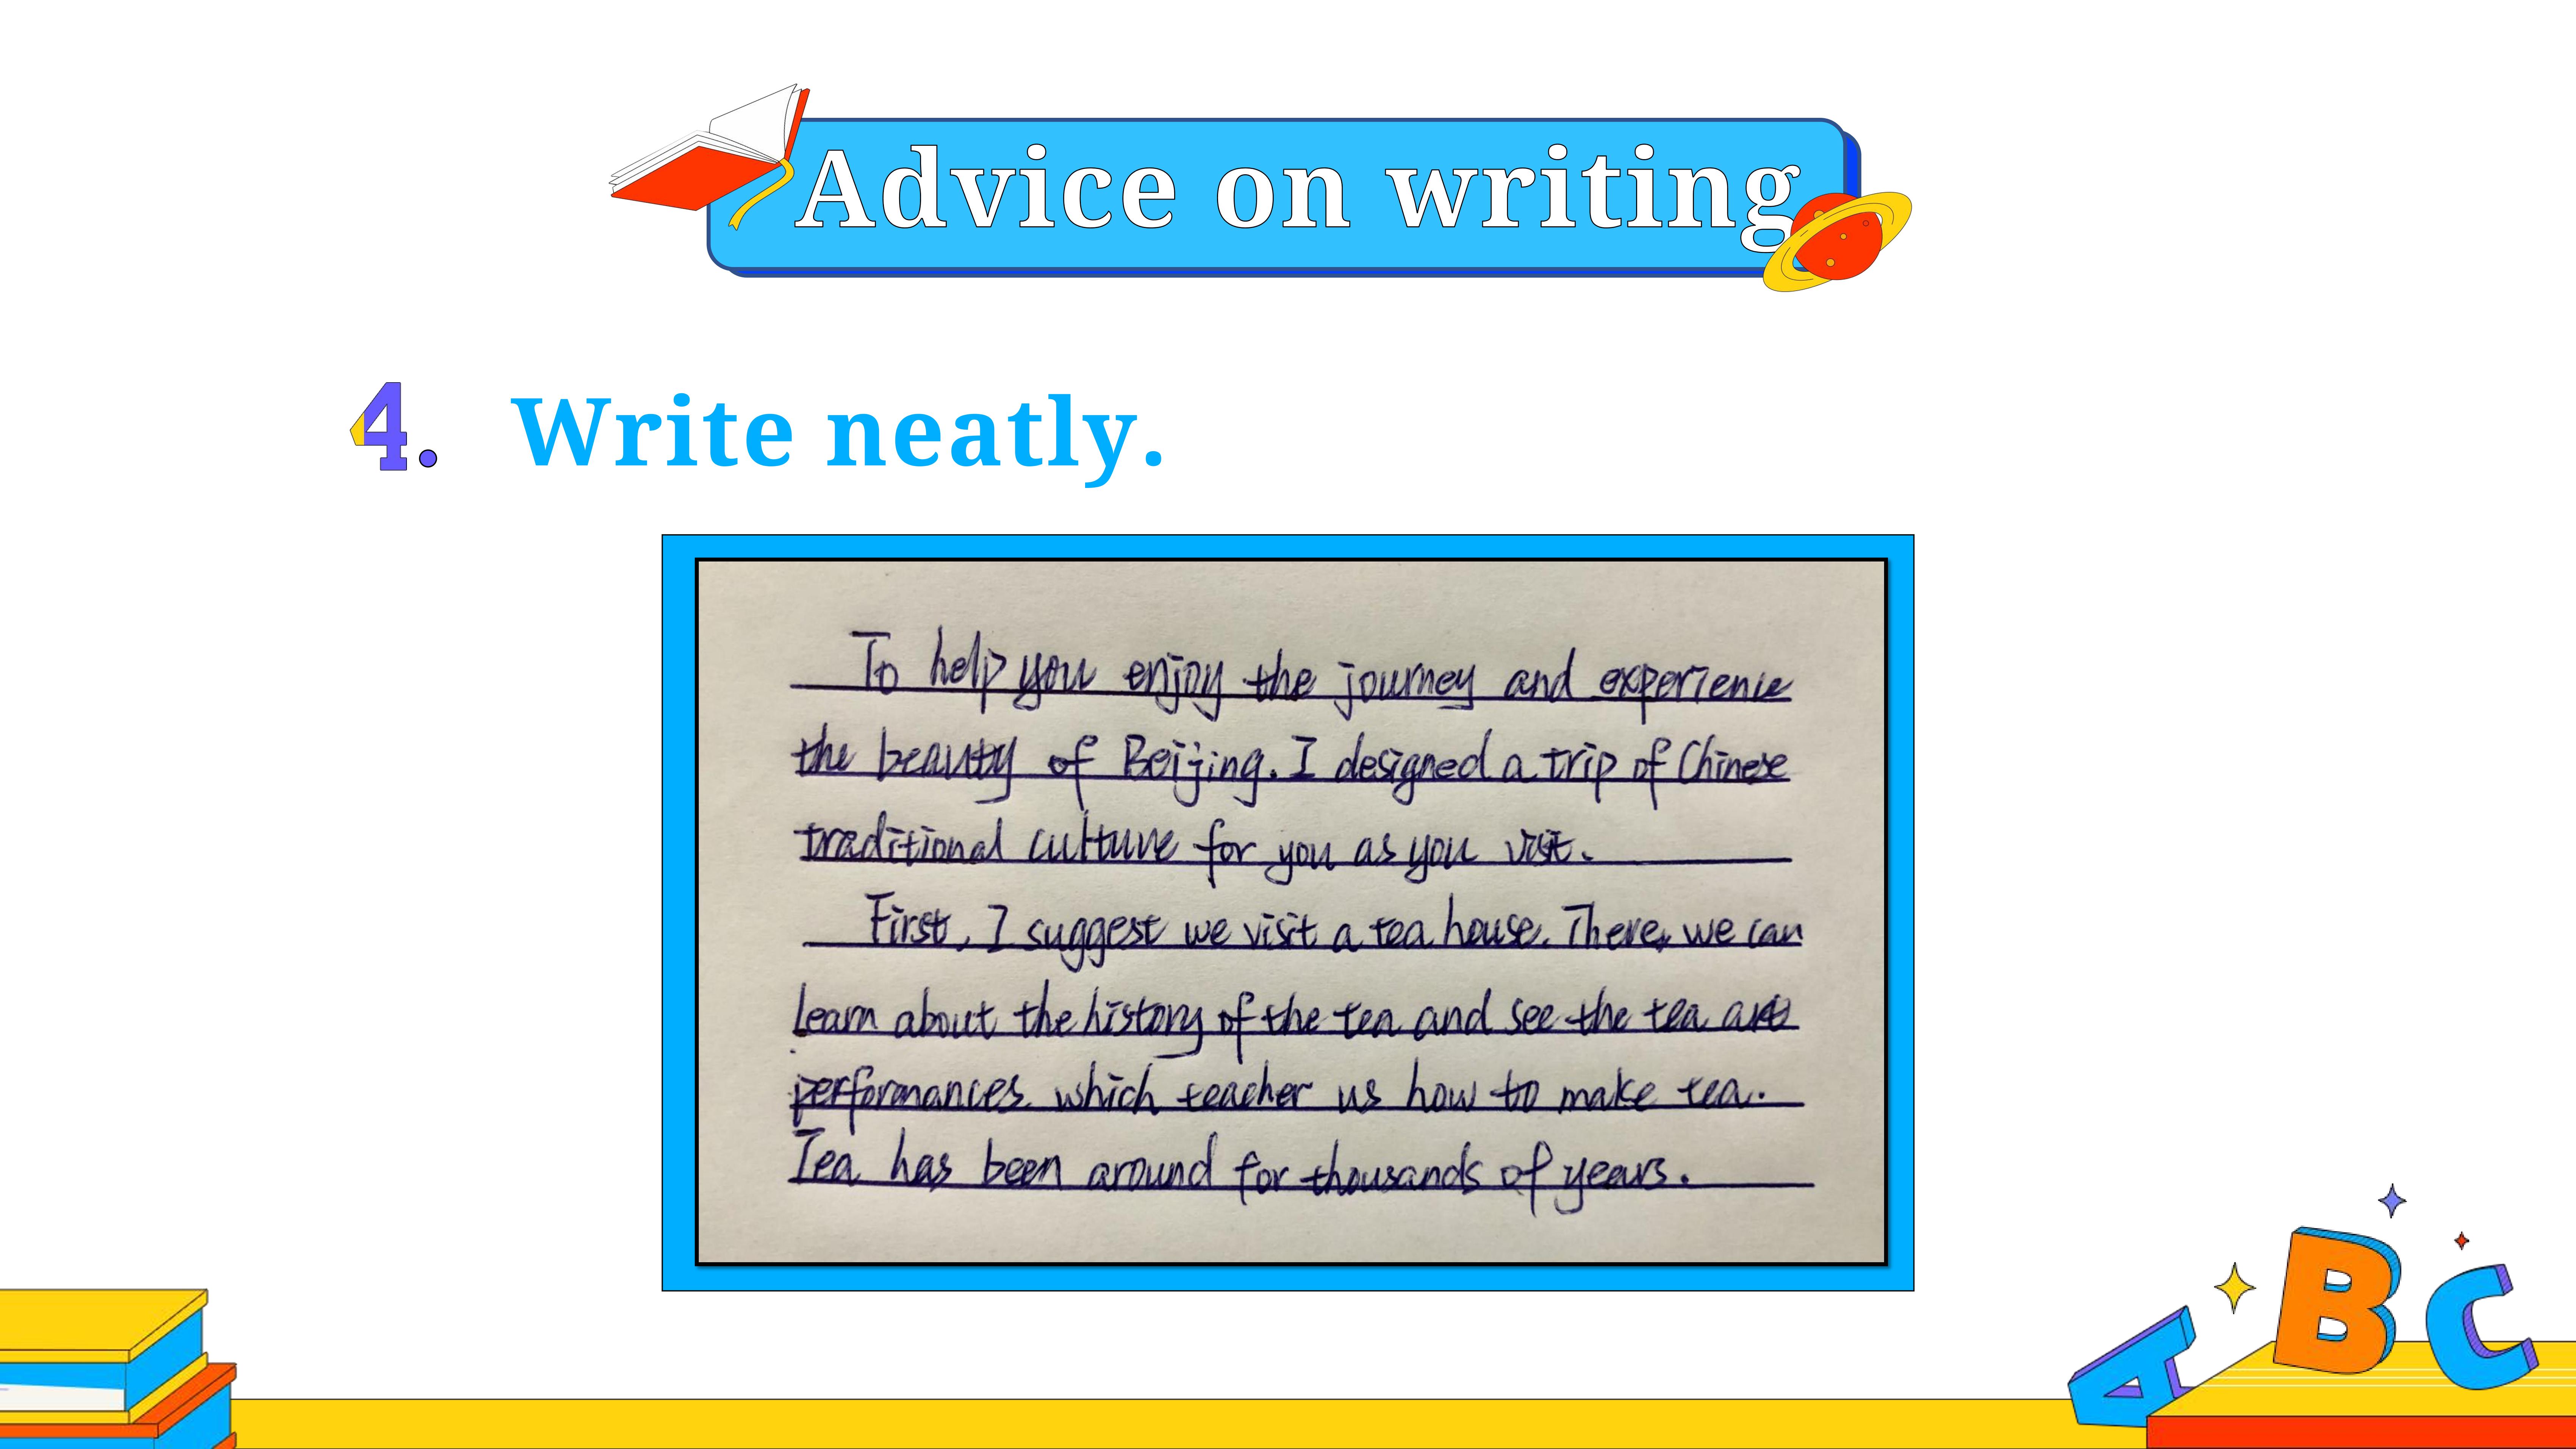 Advice on writing
4. Write neatly.
To help you enjoy the journey and experience
the beauty of Beijing. I designed a trip of Chinese
traditional culture for you as you visit.
First, I suggest we visit a tea house. There, we can
learn about the history of the tea and see the tea arts
performances which teacher us how to make tea.
Tea has been around for thousands of years.
A B C